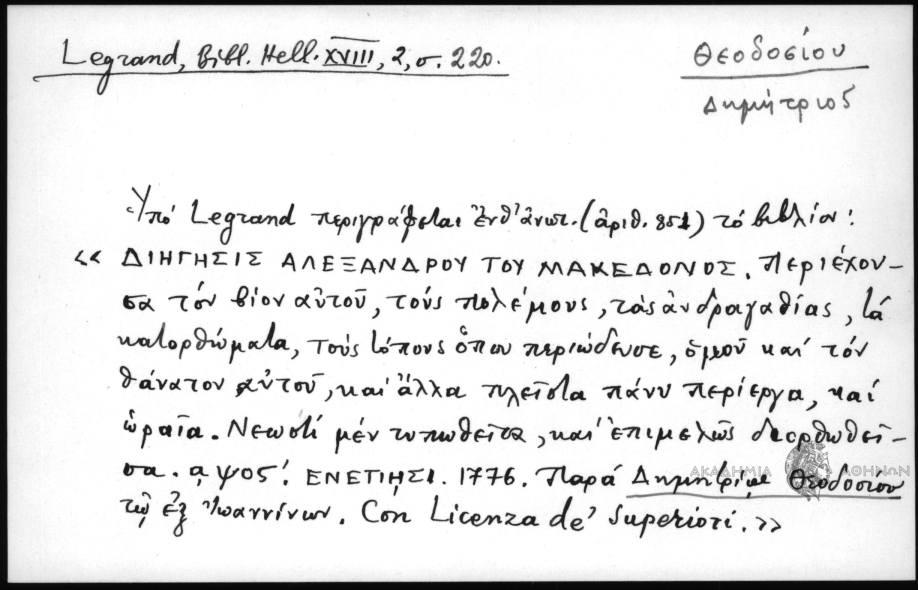 Legrand, Bibl. Hell. XVIII, 2, σ. 220.
Θεοδοσίου
Δημήτριος
Ὑπό Legrand περιγράφεται ἔνθ' ἀνωτ. (ἀριθ. 851) τό βιβλίον:
« ΔΙΗΓΗΣΙΣ ΑΛΕΞΑΝΔΡΟΥ ΤΟΥ ΜΑΚΕΔΟΝΟΣ. Περιέχου-
σα τόν βίον αὐτοῦ, τούς πολέμους, τάς ἀνδραγαθίας, τά
κατορθώματα, τούς τόπους ὅπου περιώδευσε, ὁμοῦ καί τόν
θάνατον αὐτοῦ, καί ἄλλα πλεῖστα πάνυ περίεργα, καί
ὡραῖα. Νεωστί μέν τυπωθεῖσα, καί ἐπιμελῶς διορθωθεῖ-
σα. αψος'. ΕΝΕΤΙΗΣΙ. 1776. Παρά Δημητρίῳ Θεοδοσίου
τῷ ἐξ Ἰωαννίνων. Con Licenza de' Superiori. »
ΑΚΑΔΗΜΙΑ ΑΘΗΝΩΝ